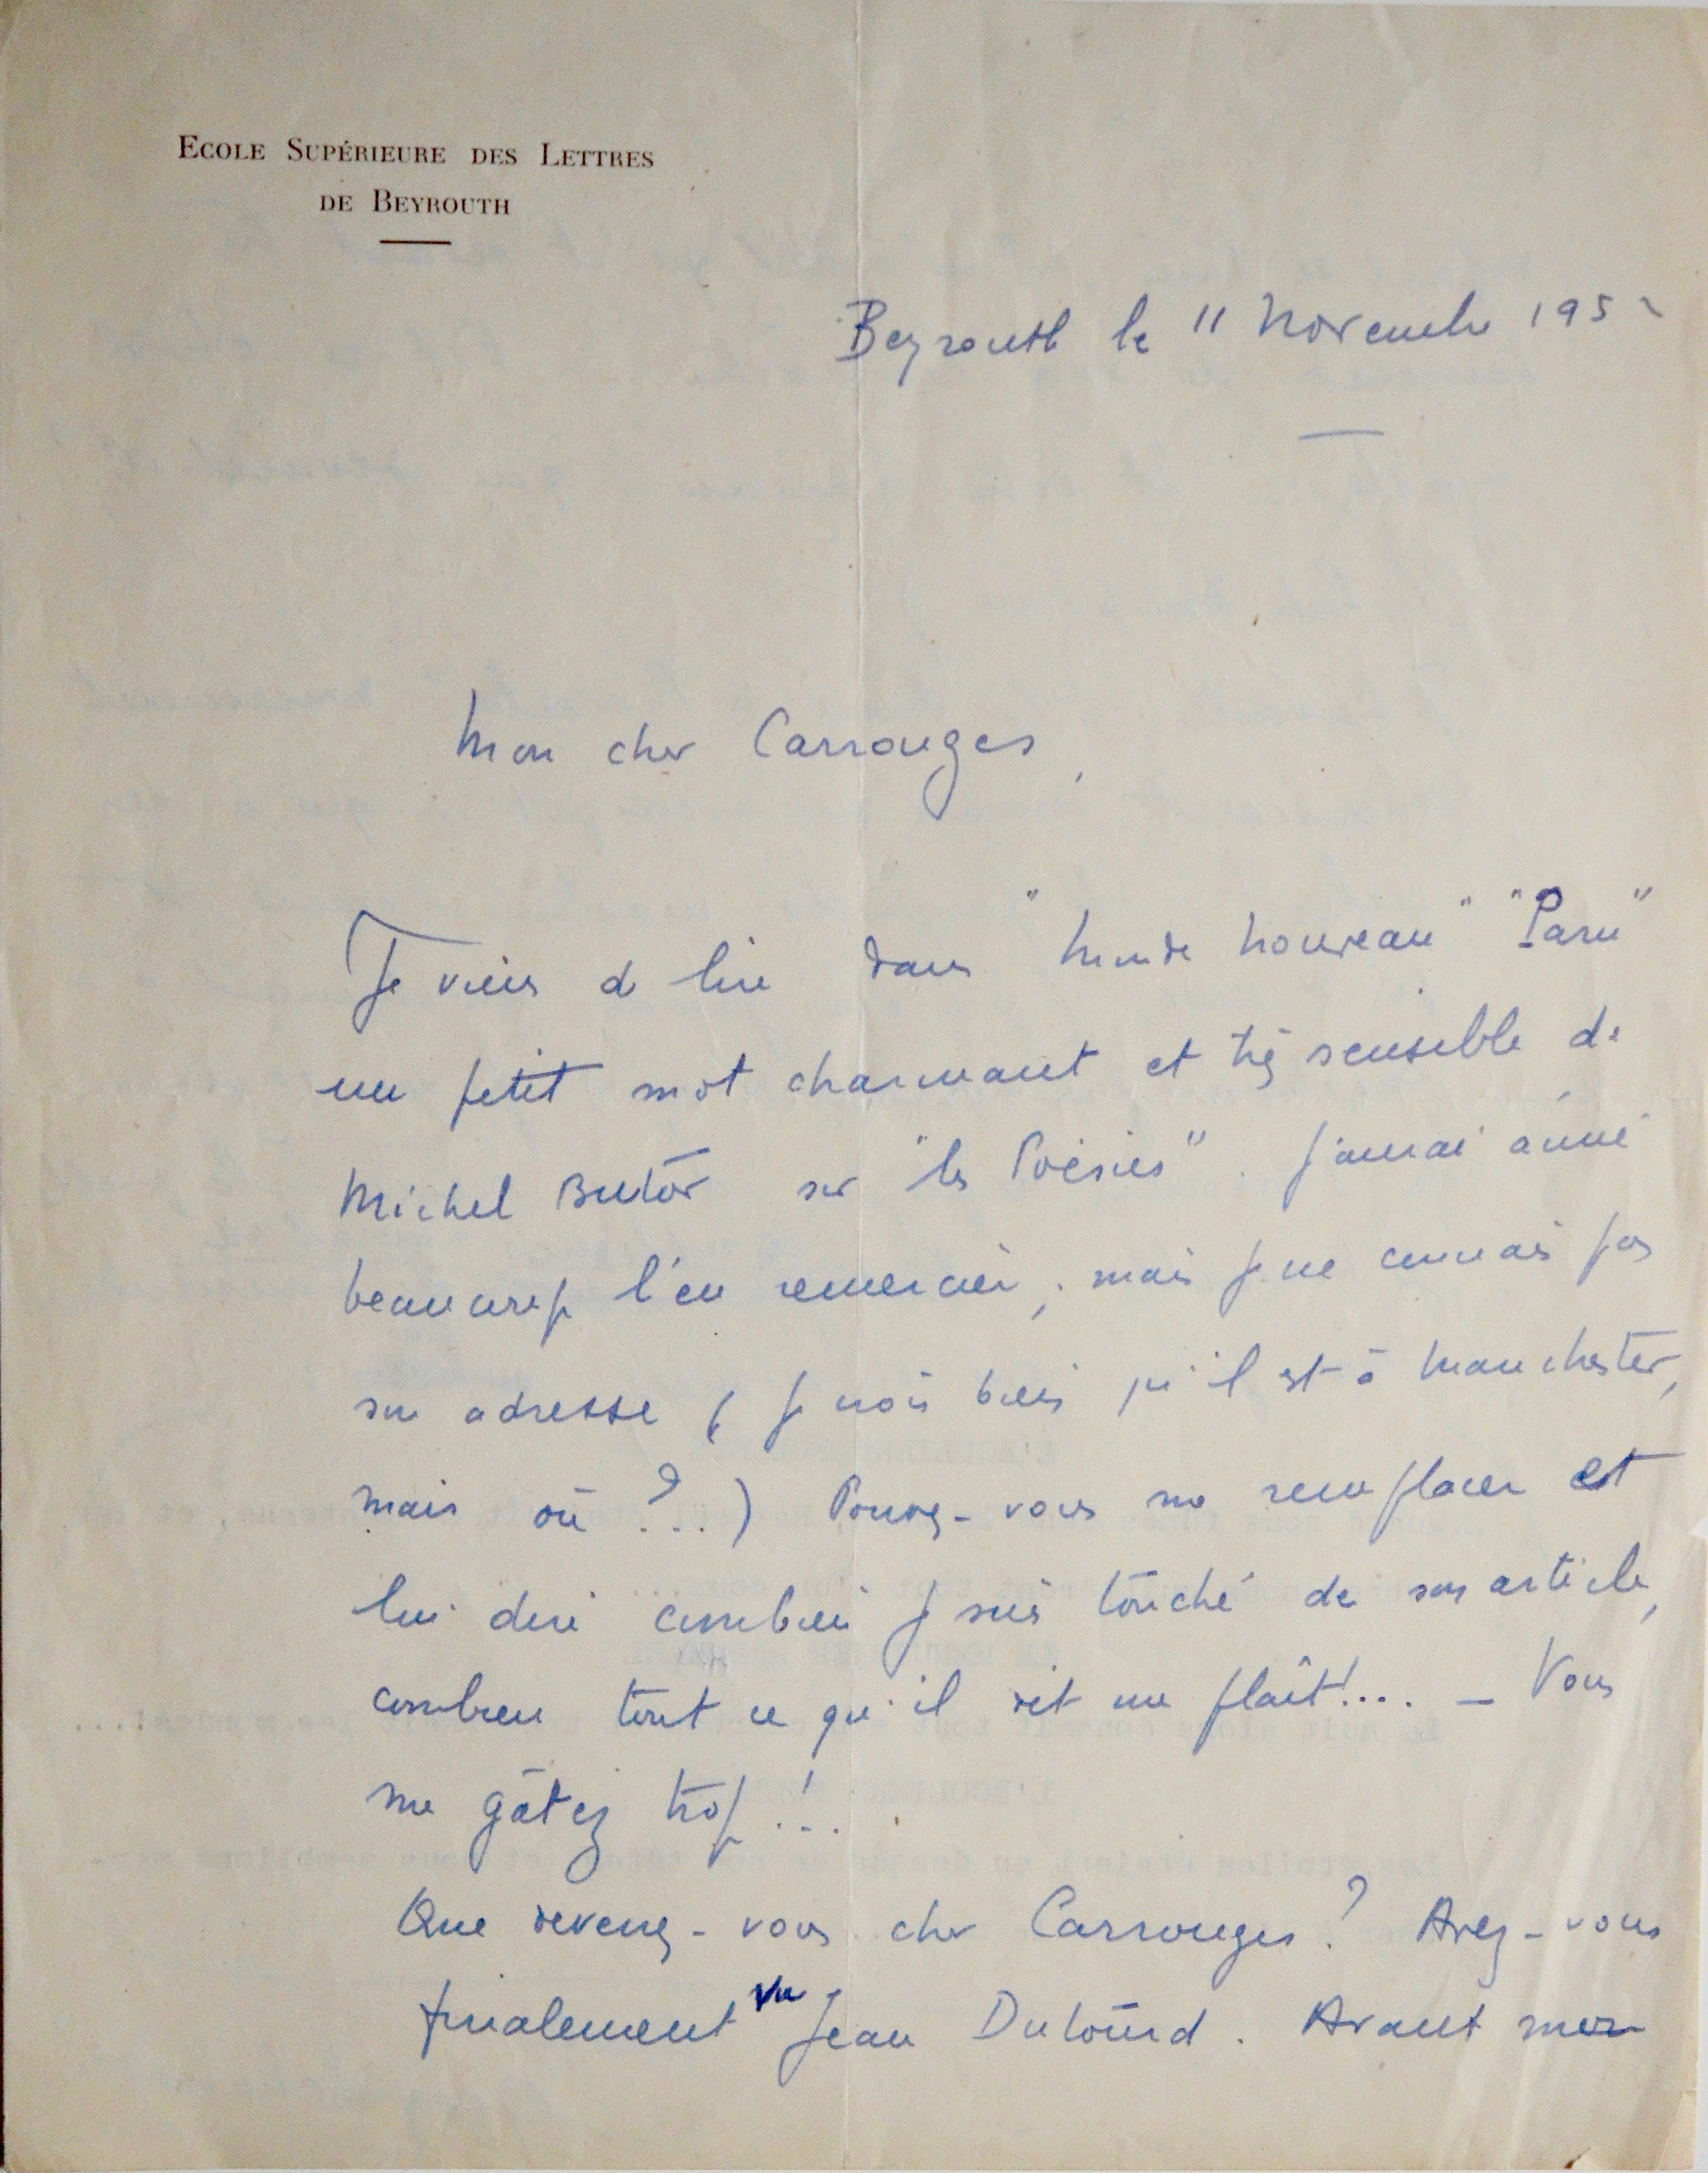 ECOLE SUPÉRIEURE DES LETTRES
DE BEYROUTH
Beyrouth le 11 Novembre 195
Mon cher Carrouges,
Je viens de lire dans "Monde Nouveau" "Paru"
un petit mot charmant et très sensible de
Michel Butor sur "les Poésies". J'aurai aimé
beaucoup l'en remercier, mais je ne connais pas
son adresse (je crois bien qu'il est à Manchester,
mais où ?...) Pouvez-vous me remplacer et
lui dire combien je suis touché de son article,
combien tout ce qu'il dit me plaît!... — Vous
me gâtez trop !..
Que devenez-vous cher Carrouges ? Avez-vous
finalement vu Jean Dutourd. Avant mon